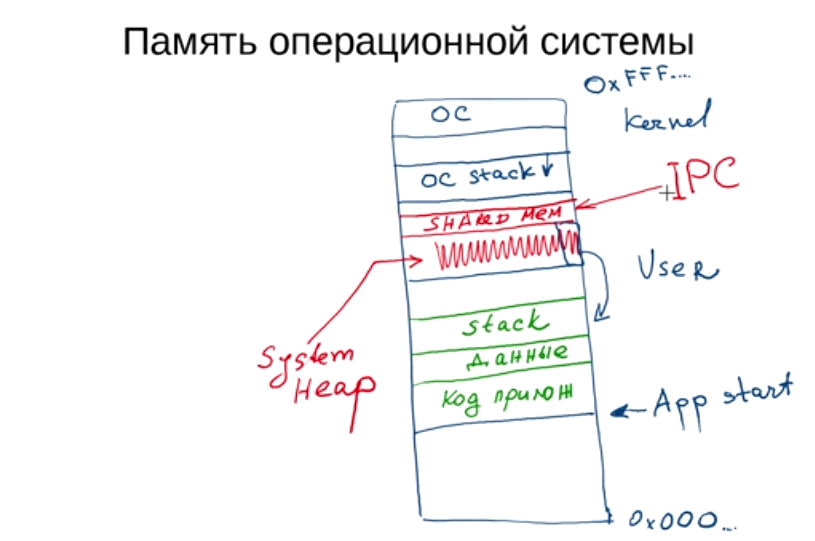 Память операционной системы
0xFFF....
ОС
Kernel
ОС stack
IPC
SHARED MEM
User
stack
System
Heap
данные
Код прилож
App start
0x000...